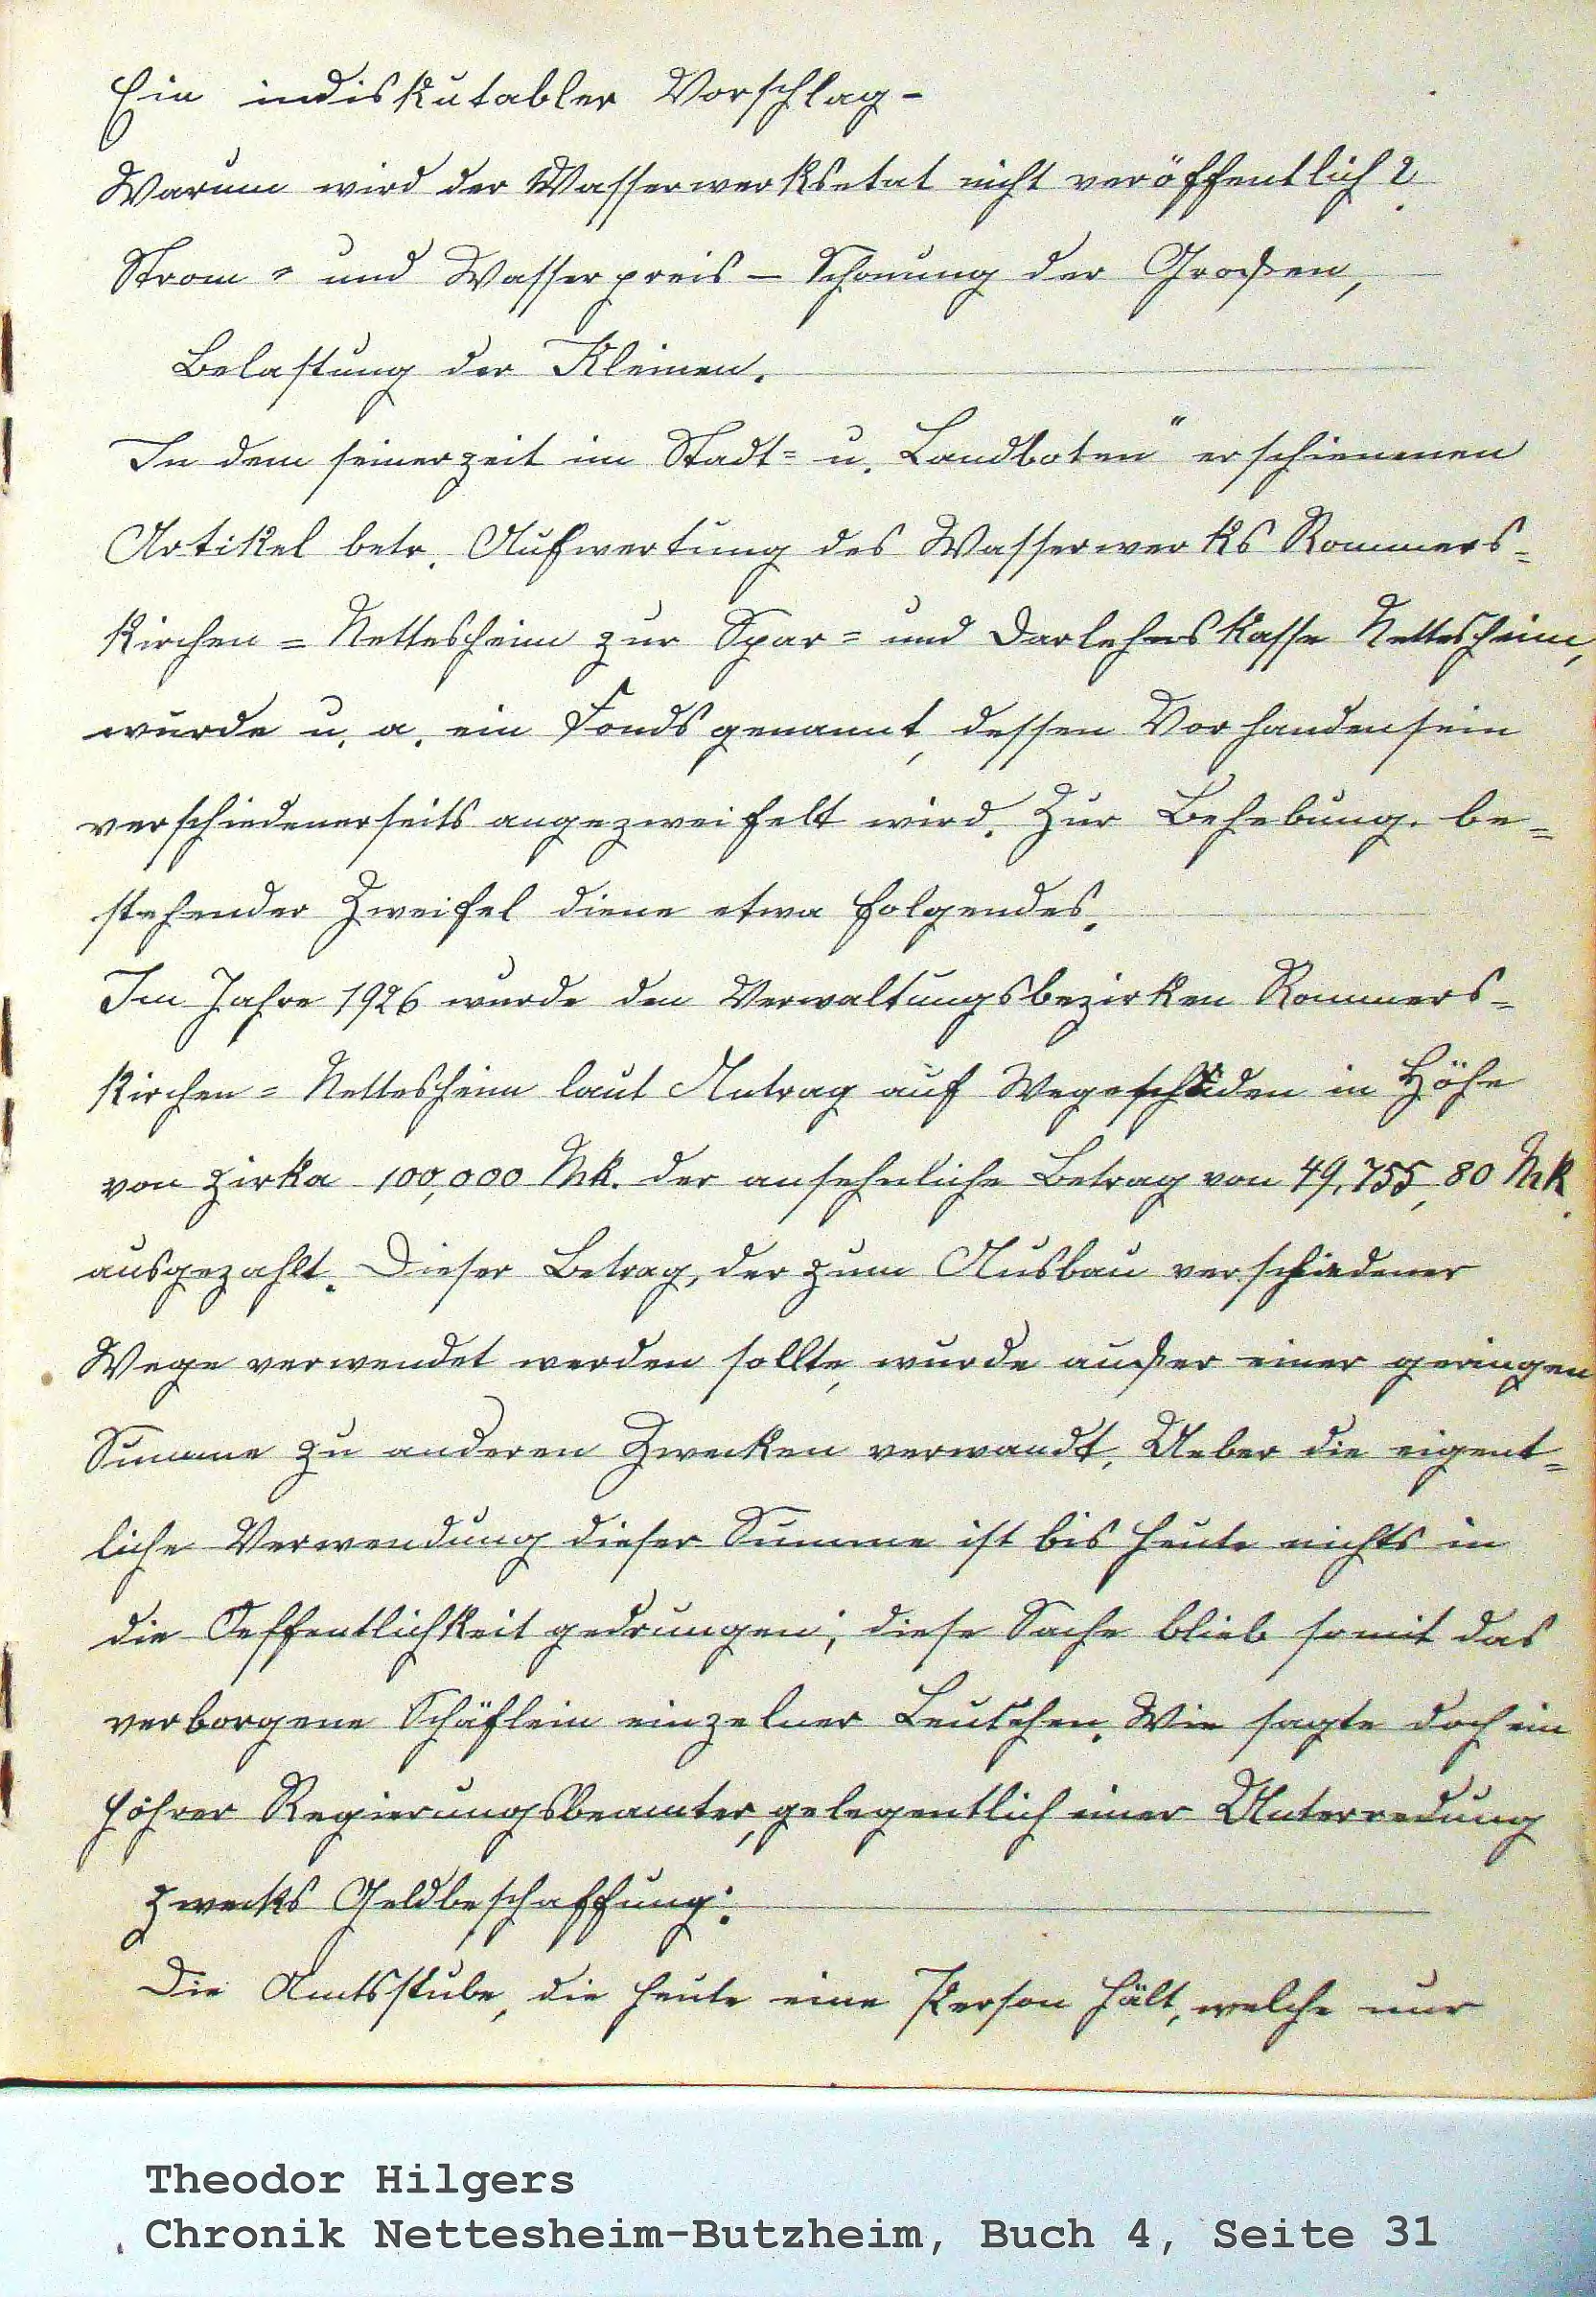 Ein indiskutabler Vorschlag -
Warum wird der Wasserwerksetat nicht veröffentlich?
Strom = und Wasserpreis – Schonung der Großen,
Belastung der Kleinen.
In dem seinerzeit im Stadt= u. Landboten" erschienenen
Artikel betr. Aufwertung des Wasserwerks Rommers=
kirchen = Nettesheim zur Spar= und Darlehnskasse Nettesheim,
wurde u. a. ein Fonds genannt, dessen Vorhandensein
verschiedenerseits angezweifelt wird. Zur Behebung be=
stehender Zweifel diene etwa folgendes.
Im Jahre 1926 wurde den Verwaltungsbezirken Rommers=
kirchen = Nettesheim laut Antrag auf Wegeschäden in Höhe
von zirka 100,000 Mk. der ansehnliche Betrag von 49,755,80 Mk.
ausgezahlt. Dieser Betrag, der zum Ausbau verschiedener
Wege verwendet werden sollte, wurde außer einer geringen
Summe zu anderen Zwecken verwandt. Ueber die eigent=
liche Verwendung dieser Summe ist bis heute nichts in
die Oeffentlichkeit gedrungen; diese Sache blieb somit das
verborgene Schäflein einzelner Leutchen. Wie sagte doch ein
höhrer Regierungsbeamter, gelegentlich einer Unterredung
zwecks Geldbeschaffung:
Die Amtsstube, die heute eine Person hält, welche nur
Theodor Hilgers
Chronik Nettesheim-Butzheim, Buch 4, Seite 31